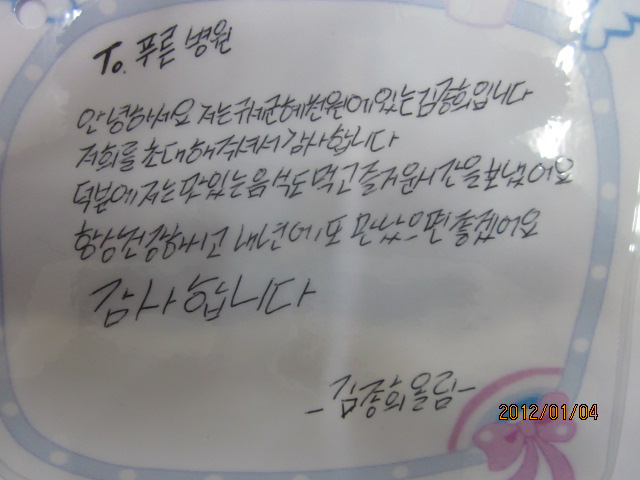 To. 푸른 병원
안녕하세요 저는 구세군혜천원에 있는 김종희입니다
저희를 초대해주셔서 감사합니다
덕분에 저는 맛있는 음식도 먹고 즐거운시간을 보냈어요
항상건강하시고 내년에 또 만났으면 좋겠어요
감사합니다
-김종희올림-
2012/01/04